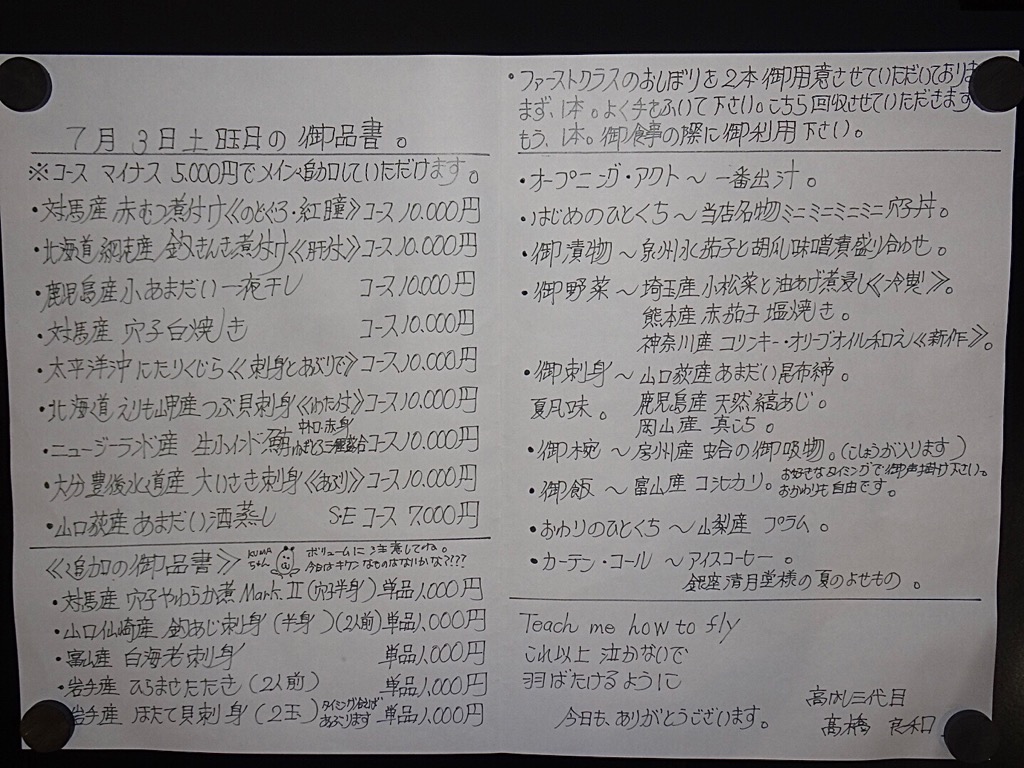 7月3日土曜日の御品書。
※コース マイナス 5.000円でメイン追加していただけます。
・対馬産 赤むつ煮付け≪のどぐろ・紅瞳≫コース10.000円
・北海道網走産 釣きんき煮付け≪肝付≫コース10.000円
・鹿児島産小あまだい一夜干し コース10.000円
・対馬産 穴子白焼き コース10.000円
・太平洋沖にたりくじら≪刺身とあぶりで≫コース10.000円
・北海道えりも岬産つぶ貝刺身≪わた付≫コース10.000円
・ニュージーランド産 生インド鮪 中トロ赤身 コース10.000円
・大分豊後水道産大いさき刺身≪あぶり≫コース10.000円
・山口萩産あまだい酒蒸し S.Eコース 7.000円
≪追加の御品書≫ KUMAちゃん ボリュームに注意してね。
今日はキケンなものはないかな?!??
・対馬産 穴子やわらか煮 Mark Ⅱ(穴子半身) 単品1.000円
・山口仙崎産 釣あじ刺身(半身)(2人前) 単品1.000円
・富山産 白海老刺身 単品1.000円
・岩手産 ひらまさたたき(2人前) 単品1.000円
・岩手産 ほたて貝刺身(2玉) タイミング合えばあぶります 単品1.000円
・ファーストクラスのおしぼりを2本御用意させていただいておりま
まず、1本。よく手をふいて下さい。こちら回収させていただきます
もう、1本。御食事の際に御利用下さい。
・オープニング・アクト〜一番出汁。
・はじめのひとくち〜当店名物ミニミニミニミニ穴子丼。
・御漬物〜泉州水茄子と胡瓜味噌漬盛り合わせ。
・御野菜〜埼玉産小松菜と油あげ煮浸し≪冷製≫。
熊本産 赤茄子塩焼き。
神奈川産 コリンキー・オリーブオイル和え≪新作≫。
・御刺身〜山口萩産あまだい昆布締。
夏風味。 鹿児島産 天然縞あじ。
岡山産 真こち。
・御椀〜房州産 蛤の御吸物。(こしょうが入ります)
・御飯〜富山産 コシヒカリ。 お好きなタイミングで御声掛け下さい。
おかわりも自由です。
・おわりのひとくち〜山梨産 プラム。
・カーテン・コール 〜アイスコーヒー。
銀座清月堂様の夏のよせもの。
Teach me how to fly
これ以上 泣かないで
羽ばたけるように
今日も、ありがとうございます。
高はし三代目
髙橋 良和